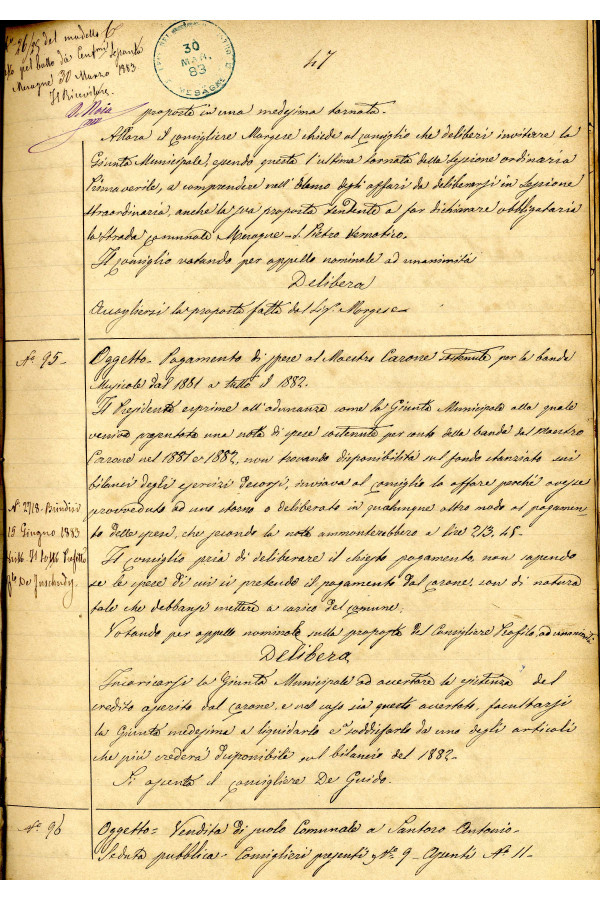 N° 26/75 del modello 6
per bollo da Centmi sessanta
Mesagne 30 Marzo 1883
Il Ricevitore
30
MAR.
83
MESAGNE
47
proposte in una medesima tornata.
Allora il Consigliere Morgese chiede al Consiglio che deliberi invitare la
Giunta Municipale, essendo questa l'ultima tornata della Sessione ordinaria
Primaverile, a comprendere nell'Elenco degli affari da deliberarsi in Sessione
straordinaria, anche la sua proposta tendente a far dichiarare obbligatoria
la strada comunale Mesagne - S. Pietro Vernotico.
Il Consiglio votando per appello nominale ad unanimità
Delibera
Accogliersi la proposta fatta dal Sig. Morgese.
N° 95 -
Oggetto - Pagamento di spese al Maestro Carone sostenute per la banda
Musicale dal 1881 a tutto il 1882.
Il Presidente esprime all'adunanza come la Giunta Municipale alla quale
veniva presentata una nota di spese sostenute per conto della banda dal Maestro
Carone nel 1881 e 1882, non trovando disponibilità sul fondo stanziato sui
bilanci degli esercizi decorsi, inviava al Consiglio lo affare perché avesse
provveduto ad uno storno o deliberato in qualunque altro modo al pagamen-
to delle spese, che secondo la nota ammonterebbero a lire 213,45 -
N° 2718 - Brindisi
15 Giugno 1883
Visto Il Sotto Prefetto
Il Consiglio pria di deliberare il chiesto pagamento, non sapendo
se le spese di cui si pretende il pagamento dal Carone, son di natura
tale che debbansi mettere a carico del comune;
Votando per appello nominale sulla proposta del Consigliere Profilo, ad unanimità
Delibera
Incaricarsi la Giunta Municipale ad accertare la esistenza del
credito asserito dal Carone, e nel caso sia questo accertato, facultarsi
la Giunta medesima a liquidarlo e soddisfarlo da uno degli articoli
che più crederà disponibile sul bilancio del 1882 -
Si assenta il Consigliere De Guido.
N° 96
Oggetto = Vendita di suolo Comunale a Santoro Antonio -
Seduta pubblica - Consiglieri presenti N° 9 - Assenti N° 11 -